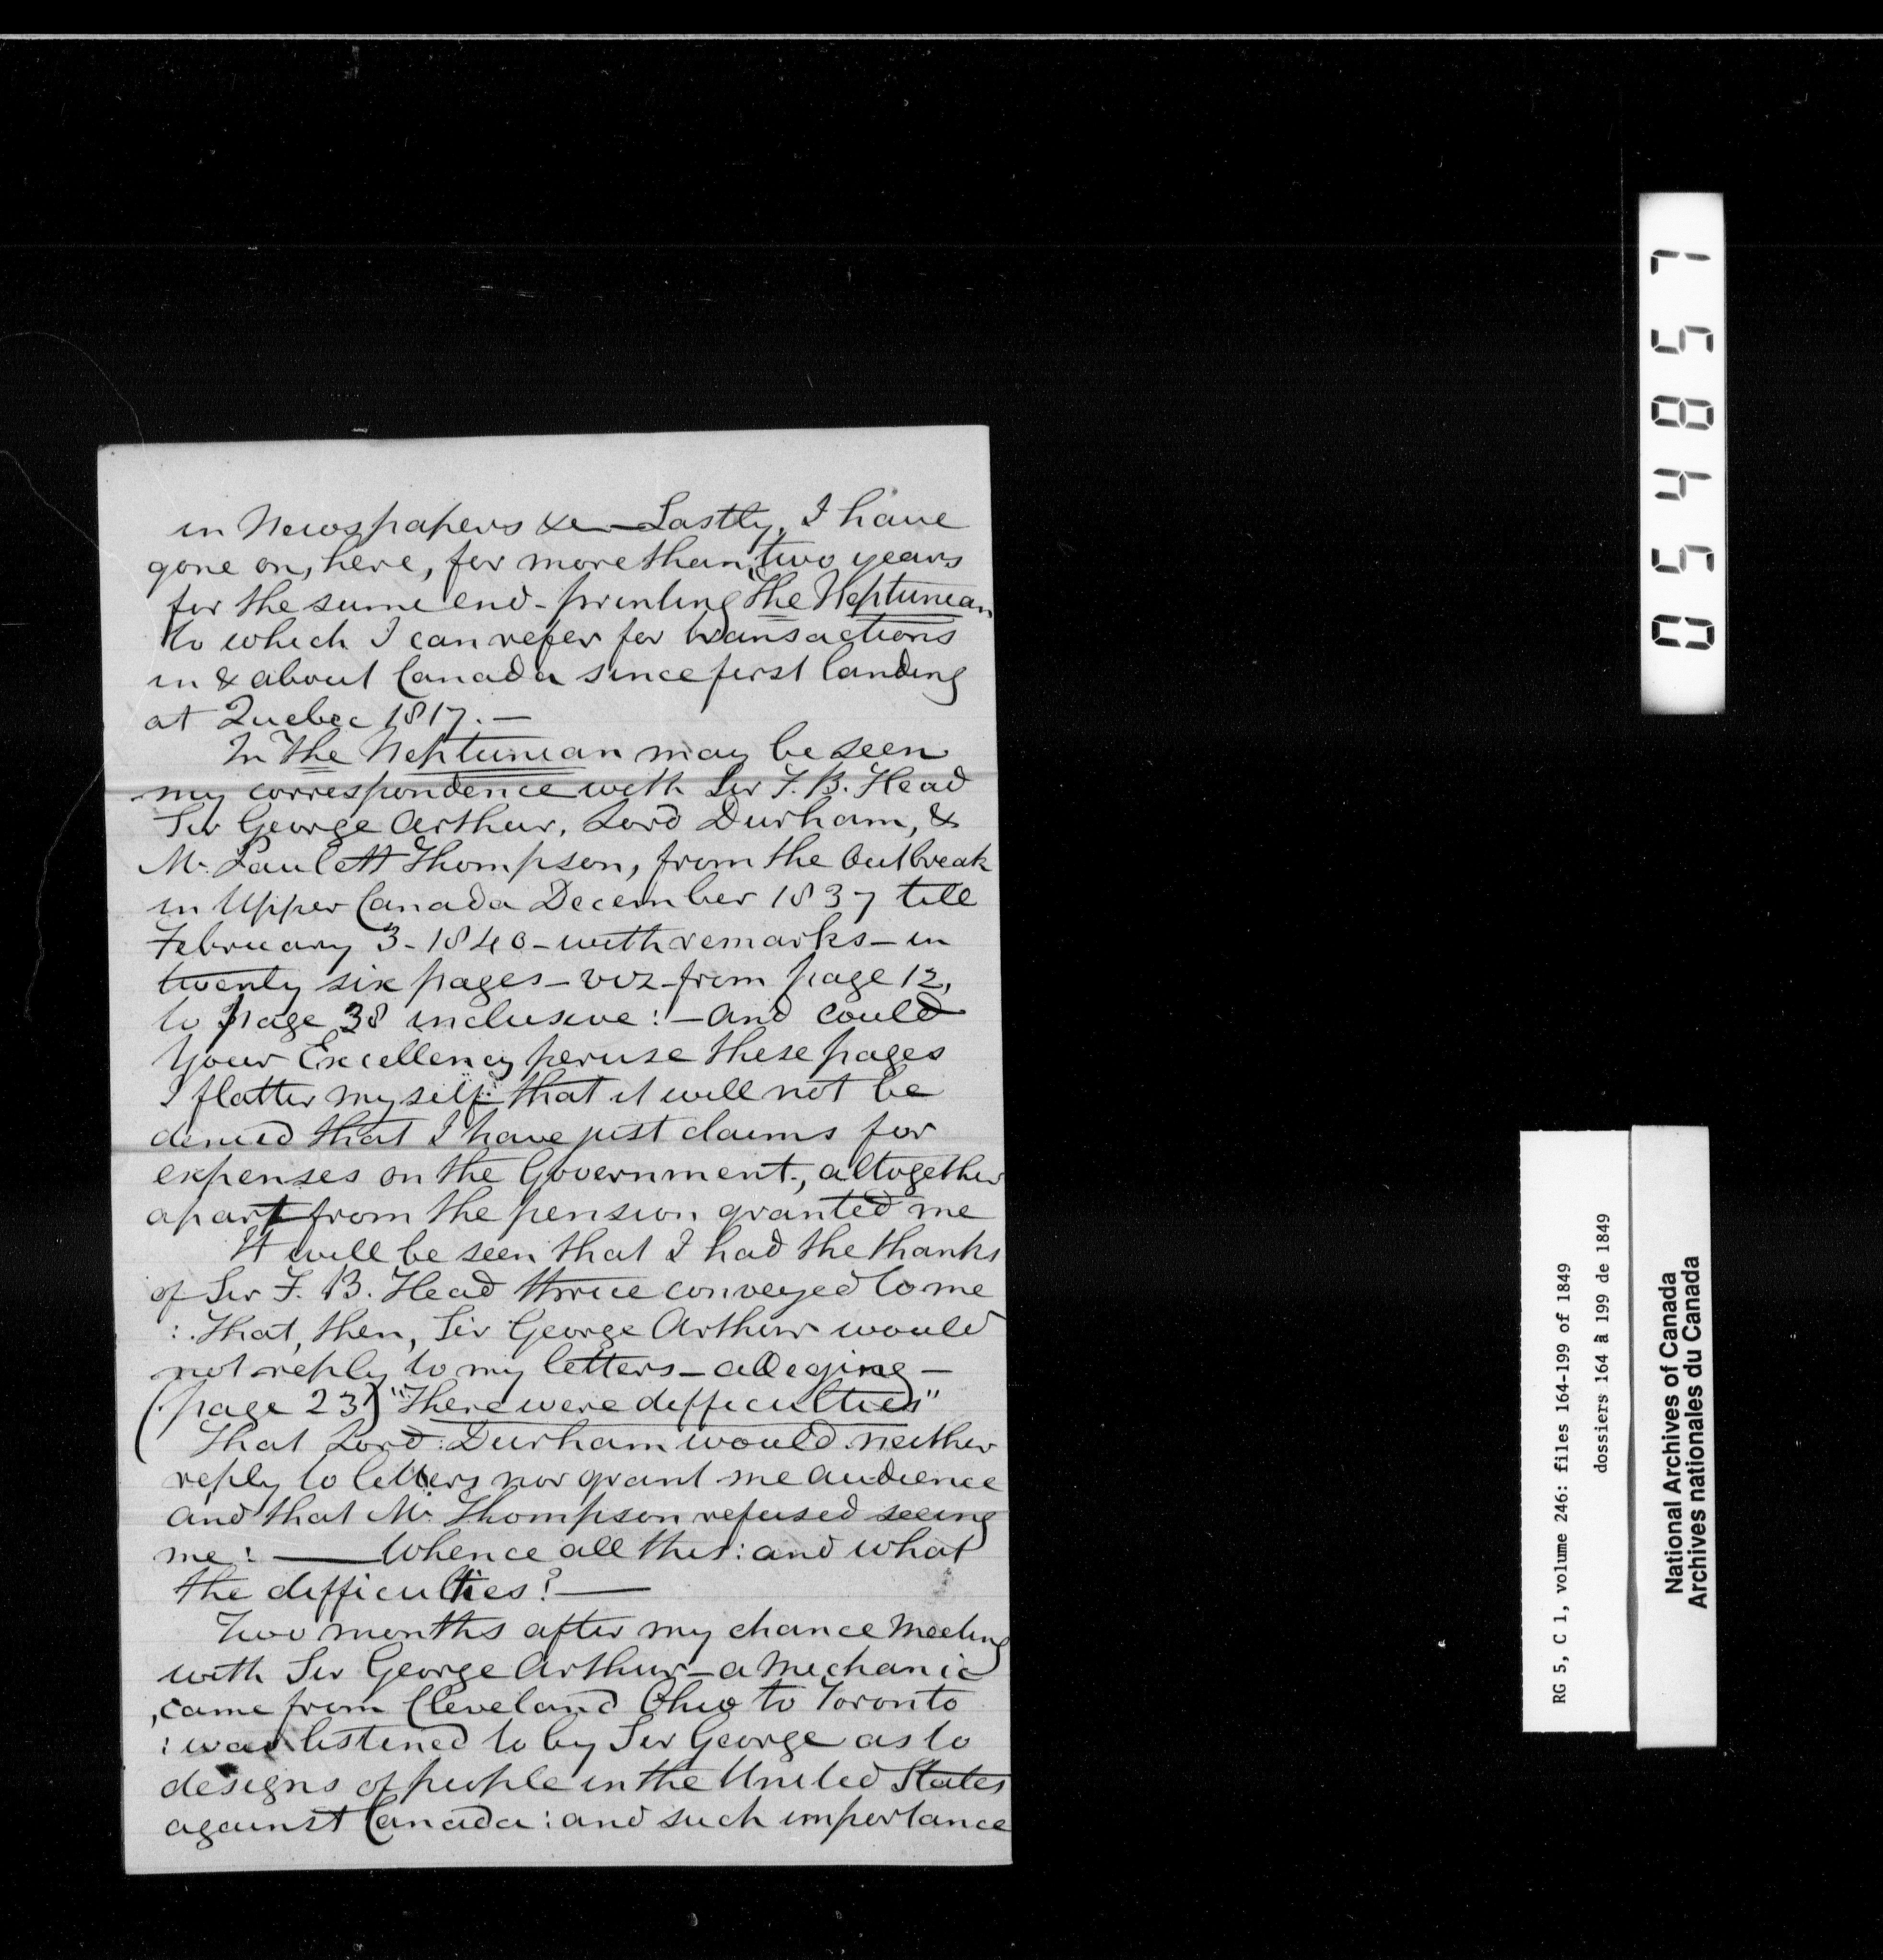 in Newspapers &c — Lastly, I have
gone on, here, for more than two years
for the same end - printing The Neptunian
to which I can refer for transactions
in & about Canada since first landing
at Quebec 1817. —
In The Neptunian may be seen
my correspondence with Sir F. B. Head
Sir George Arthur, Lord Durham, &
Mr. Paulett Thompson, from the Outbreak
in Upper Canada December 1837 till
February 3 - 1840 - with remarks - in
twenty six pages - viz - from page 12,
to page 38 inclusive: - and could
Your Excellency peruse these pages
I flatter myself that it will not be
denied that I have just claims for
expenses on the Government, altogether
apart from the pension granted me
It will be seen that I had the thanks
of Sir F. B. Head thrice conveyed to me
: That, then, Sir George Arthur would
not reply to my letters - alleging -
(page 23) "There were difficulties"
That Lord Durham would neither
reply to letters nor grant me audience
and that Mr. Thompson refused seeing
me: — Whence all this: and what
the difficulties? —
Two months after my chance meeting
with Sir George Arthur - a Mechanic
, came from Cleveland Ohio to Toronto
: was listened to by Sir George as to
designs of people in the United States
against Canada: and such importance
054857
RG 5, C 1, volume 246: files 164-199 of 1849
dossiers 164 à 199 de 1849
National Archives of Canada
Archives nationales du Canada